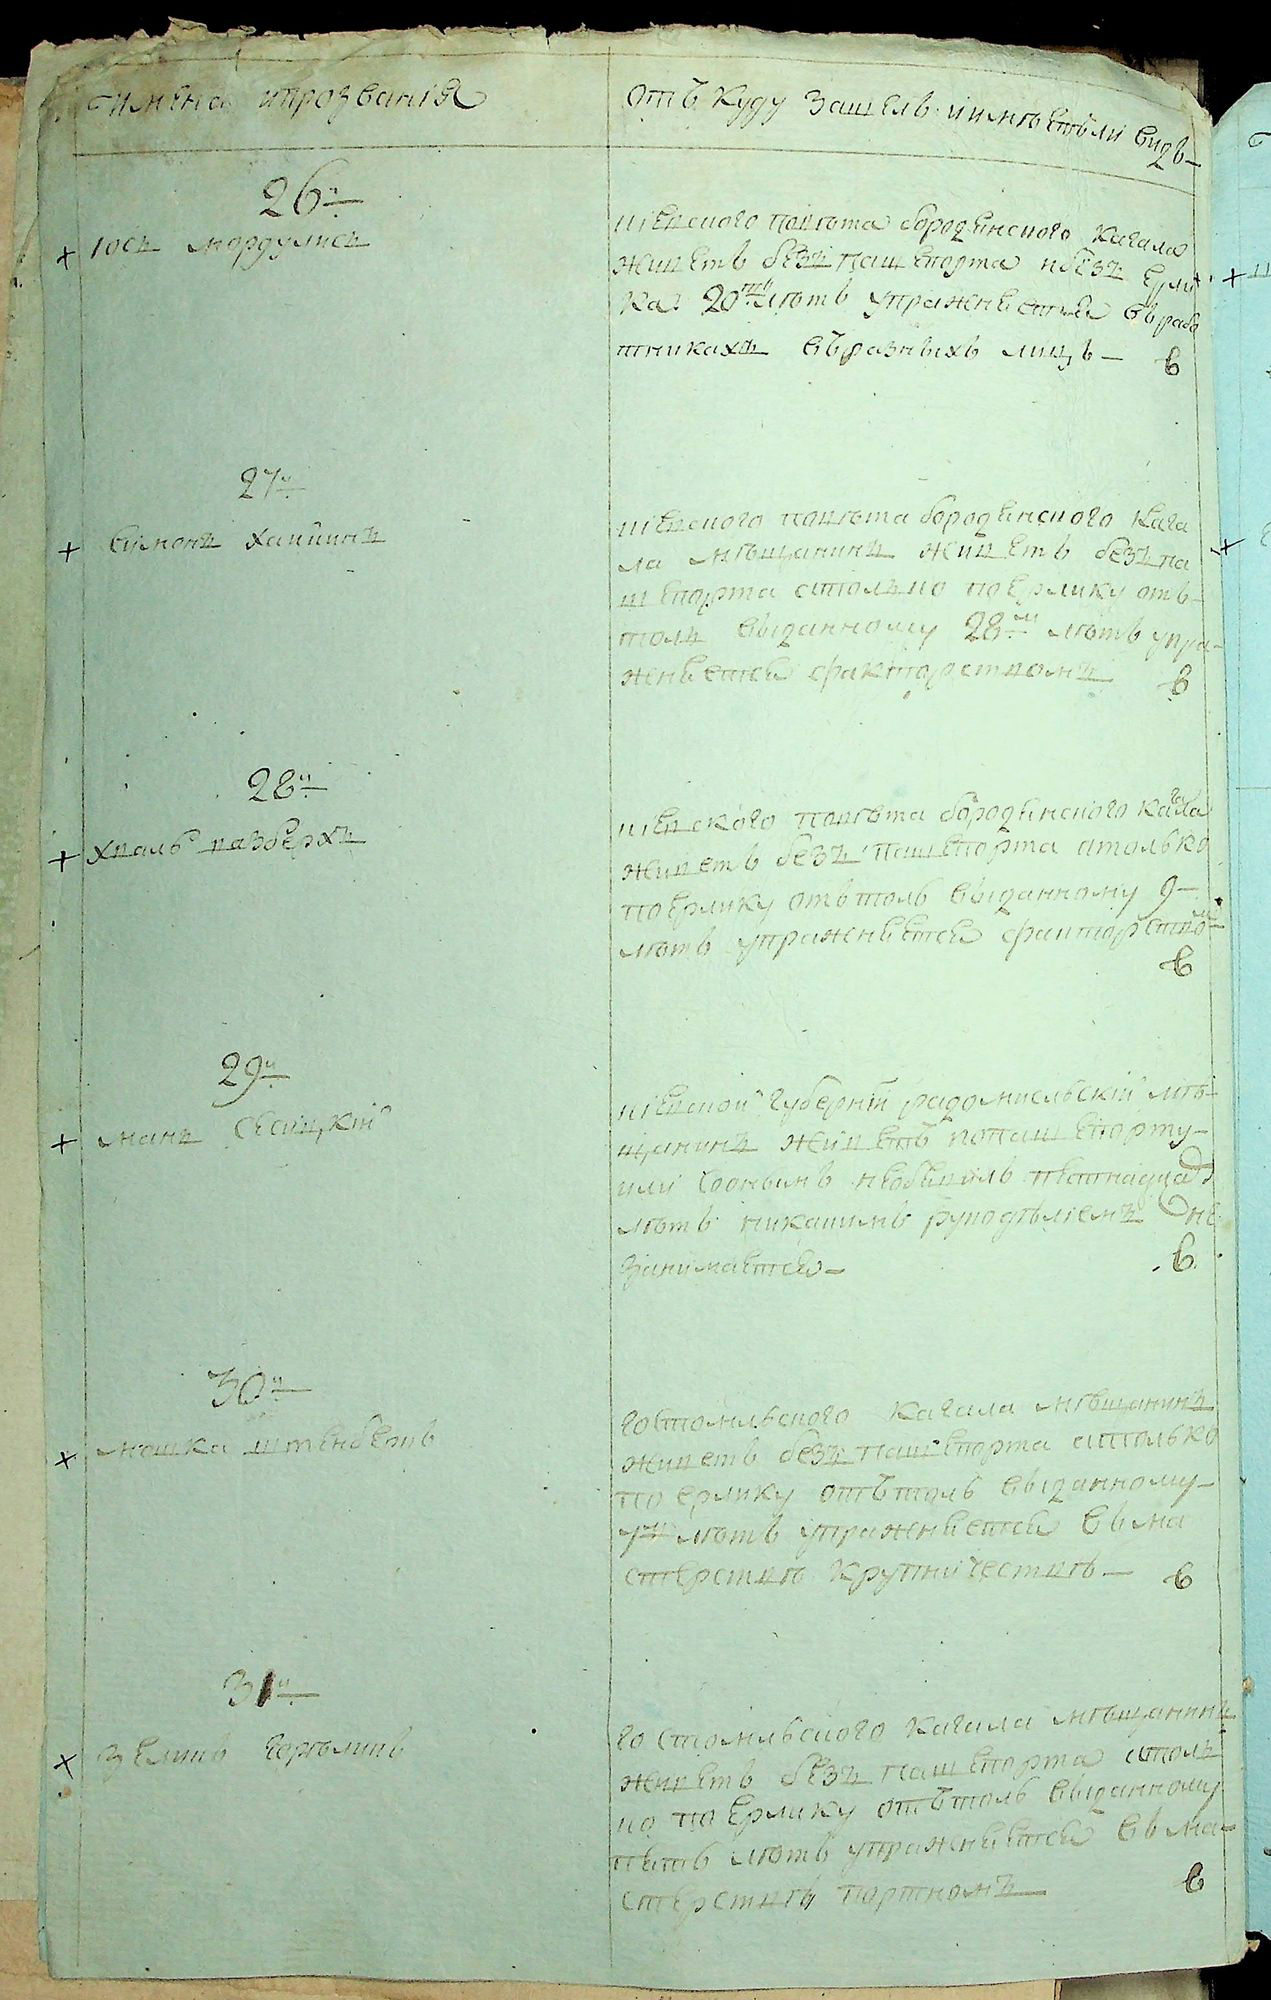 имена ипрозвания
отъ куду зашелъ иимѣетъли видъ
26й
+ Іосъ мордулисъ
кіевского повѣта бородянского кагала
живетъ безъ пашепорта ибезъ ерли
ка 20ть лѣтъ упражняется въ рабо
тникахъ въ разныхъ лицъ — в
27й
+ симонъ хаимъ
кіевского повѣта бородянского кага
ла мѣщанинъ живетъ безъ па
шепорта атолько по ерлику отъ
толь выданному 28м лѣтъ упра
жняется факторствомъ в
28й
+
кіевского повѣта бородянского кагала
живетъ безъ пашепорта атолько
по ерлику отътоль выданному 9
лѣтъ упражняется факторством
в
29й
+ манъ
кіевской губерніи радомисльскій мѣ
щанинъ живетъ попашепорту
или соонымъ небывалъ пятнадцать
лѣтъ никакимъ рукодѣліемъ не
занимается — в
30й
+ мошка
гостомльского кагала мѣщанинъ
живетъ безъ пашепорта атолько
по ерлику отътоль выданному
7м лѣтъ упражняется въ ма
стерствѣ крупничествѣ — в
31й
+ Зелигъ
гостомльского кагала мѣщанинъ
живетъ безъ пашепорта атоль
ко по ерлику отътоль выданному
пять лѣтъ упражняется въ ма
стерствѣ портномъ — в